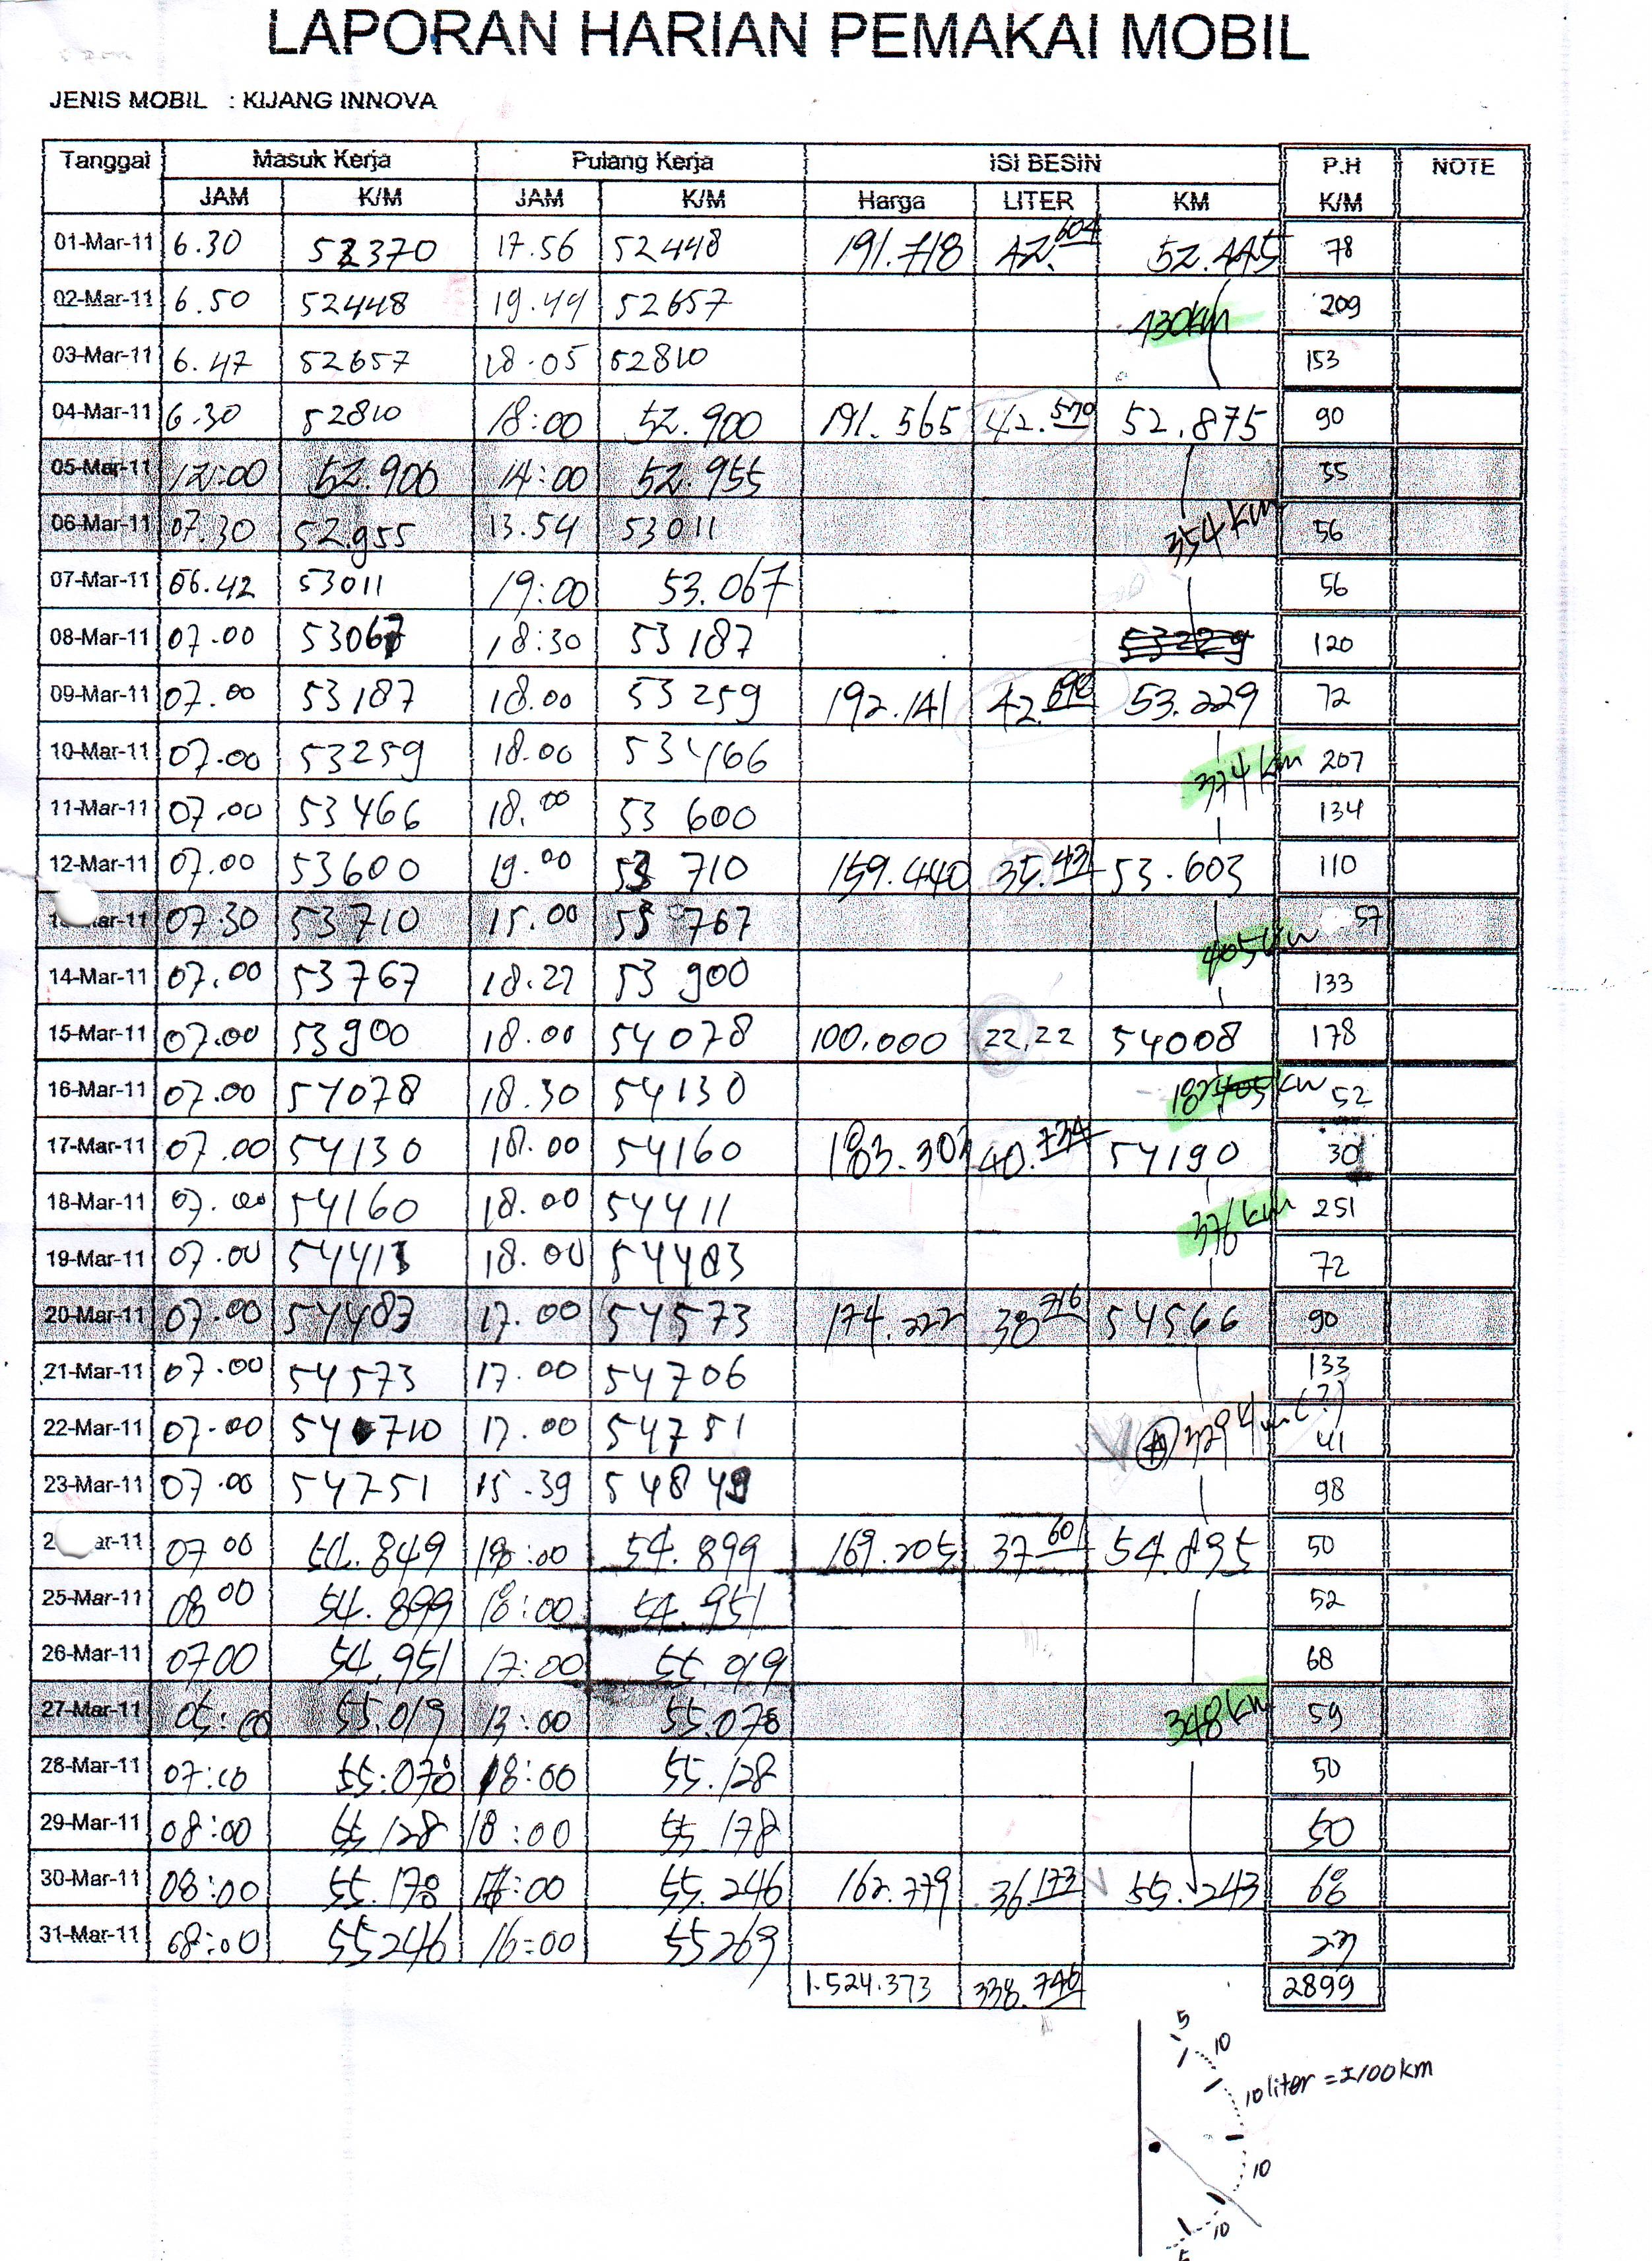 LAPORAN HARIAN PEMAKAI MOBIL
JENIS MOBIL : KIJANG INNOVA
Tanggal Masuk Kerja Pulang Kerja ISI BESIN P.H NOTE
JAM K/M JAM K/M Harga LITER KM K/M
01-Mar-11 6.30 52370 17.56 52448 191.718 42.604 52.445 78
02-Mar-11 6.50 52448 19.44 52657 430km 209
03-Mar-11 6.47 52657 18.05 52810 153
04-Mar-11 6.30 52810 18:00 52.900 191.565 42.570 52.875 90
05-Mar-11 12:00 52.900 14:00 52.955 55
06-Mar-11 07.30 52.955 13.54 53011 354 km 56
07-Mar-11 06.42 53011 19:00 53.067 56
08-Mar-11 07.00 53067 18:30 53187 53229 120
09-Mar-11 07.00 53187 18.00 53259 192.141 42. 53.229 72
10-Mar-11 07.00 53259 18.00 53466 374 km 207
11-Mar-11 07.00 53466 18.00 53 600 134
12-Mar-11 07.00 53600 19.00 53 710 159.440 35.43 53.603 110
ar-11 07.30 53710 15.00 53 767 405km 57
14-Mar-11 07.00 53767 18.27 53 900 133
15-Mar-11 07.00 53900 18.00 54078 100.000 22.22 54008 178
16-Mar-11 07.00 54078 18.30 54130 182 405 km 52
17-Mar-11 07.00 54130 18.00 54160 183.303 40.734 54190 30
18-Mar-11 07.00 54160 18.00 54411 376 km 251
19-Mar-11 07.00 54411 18.00 54483 72
20-Mar-11 07.00 54483 17.00 54573 174.222 38.716 54566 90
21-Mar-11 07.00 54573 17.00 54706 133
22-Mar-11 07.00 54710 17.00 54751 A 329 km (?) 41
23-Mar-11 07.00 54751 15.39 54849 98
2 ar-11 07 00 54.849 18:00 54.899 169.205 37.601 54.895 50
25-Mar-11 08 00 54.899 18:00 54.951 52
26-Mar-11 0700 54.951 17:00 55.019 68
27-Mar-11 05:00 55.019 13:00 55.078 348 km 59
28-Mar-11 07:00 55.078 18:00 55.128 50
29-Mar-11 08:00 55.128 18:00 55.178 50
30-Mar-11 08:00 55.178 :00 55.246 162.779 36.173 55.243 68
31-Mar-11 08:00 55246 16:00 55269 23
1.524.373 338.746 2899
5
10
10 liter = ±100 km
10
10
5